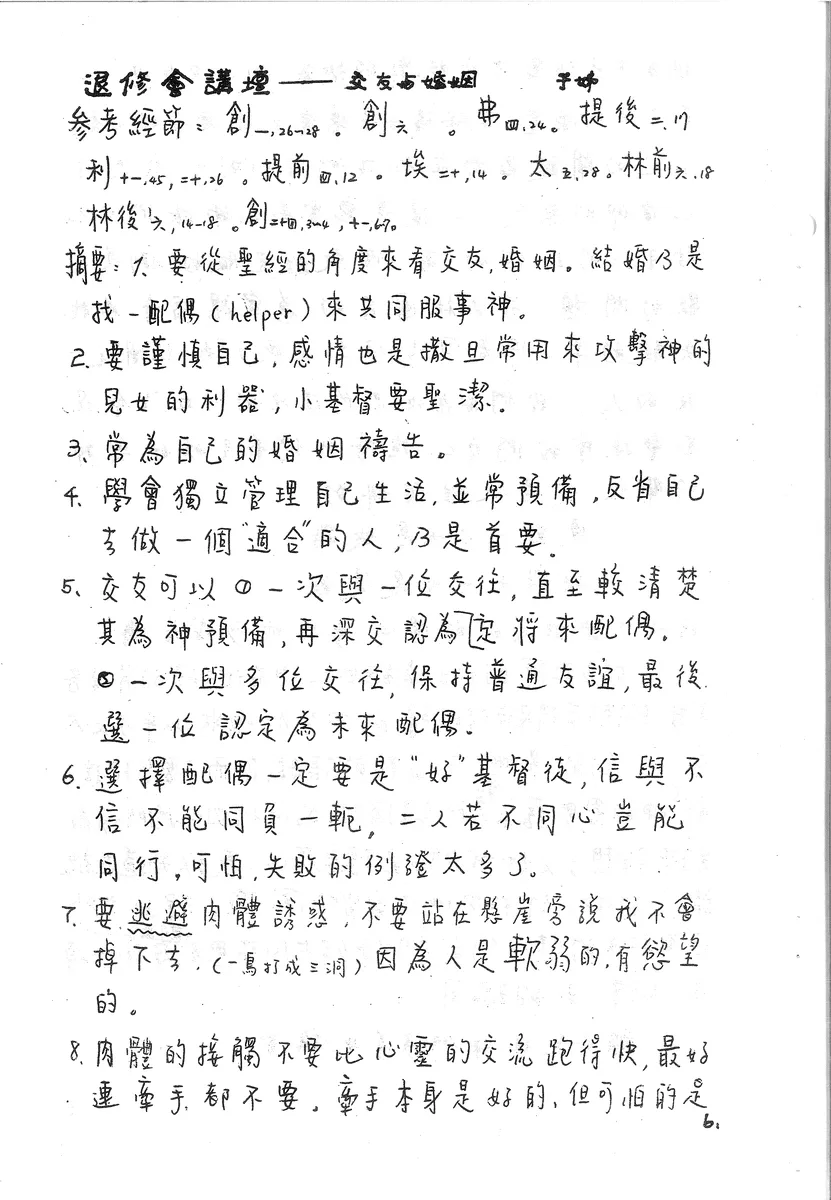 退修會講壇——交友与婚姻 于姊
参考經節：創一,26~28。創六 。弗四,24。提後二,17
利十一,45,二十,26。提前四,12。埃二十,14。太五,28。林前六,18
林後六,14-18。創二十四,3~4,十一,67。
摘要：1、要從聖經的角度來看交友,婚姻。結婚乃是
找一配偶(helper)來共同服事神。
2、要謹慎自己,感情也是撒旦常用來攻擊神的
兒女的利器,小基督要聖潔。
3、常為自己的婚姻禱告。
4、學會獨立管理自己生活,並常預備,反省自己
去做一個"適合"的人,乃是首要。
5、交友可以①一次與一位交往,直至較清楚
其為神預備,再深交認為定將來配偶。
②一次與多位交往,保持普通友誼,最後
選一位認定為未來配偶。
6、選擇配偶一定要是"好"基督徒,信與不
信不能同負一軛,二人若不同心豈能
同行。可怕,失敗的例證太多了。
7、要逃避肉體誘惑,不要站在懸崖旁說我不會
掉下去.(一鳥打成三洞)因為人是軟弱的,有慾望
的。
8、肉體的接觸不要比心靈的交流跑得快,最好
連牽手都不要。牽手本身是好的、但可怕的是
6.